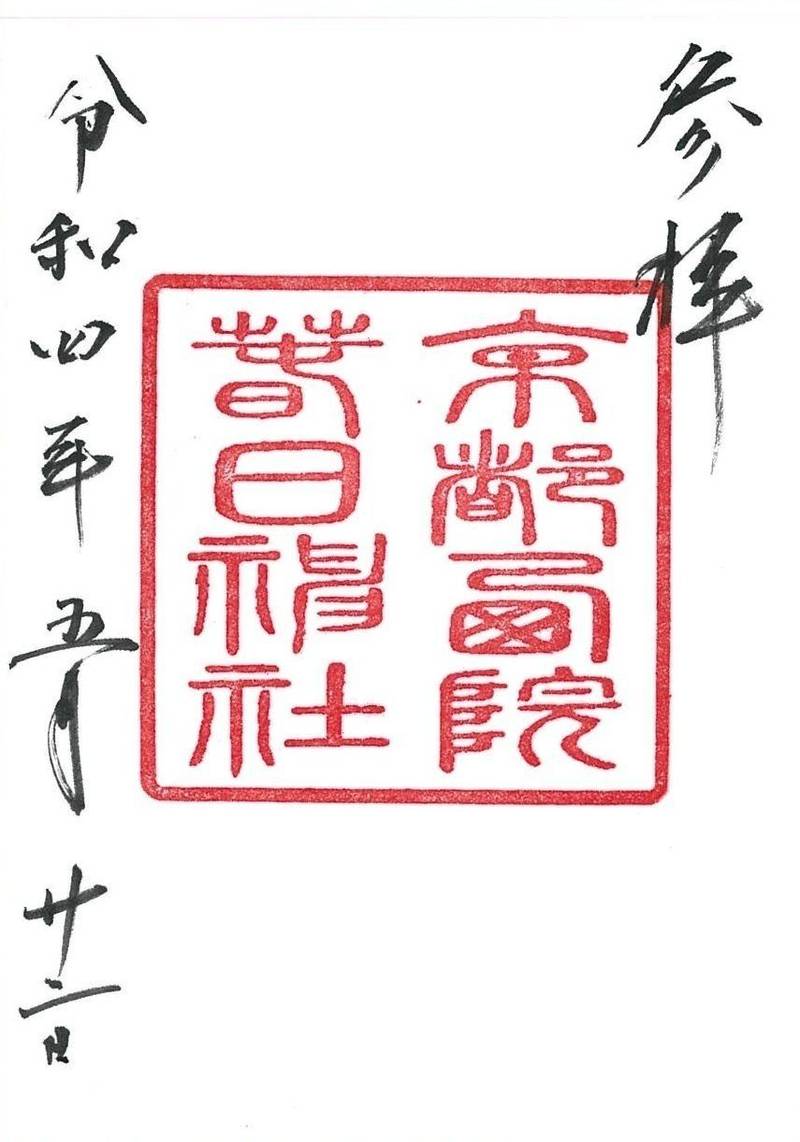 参拝
京都西院
春日神社
令和四年五月廿二日